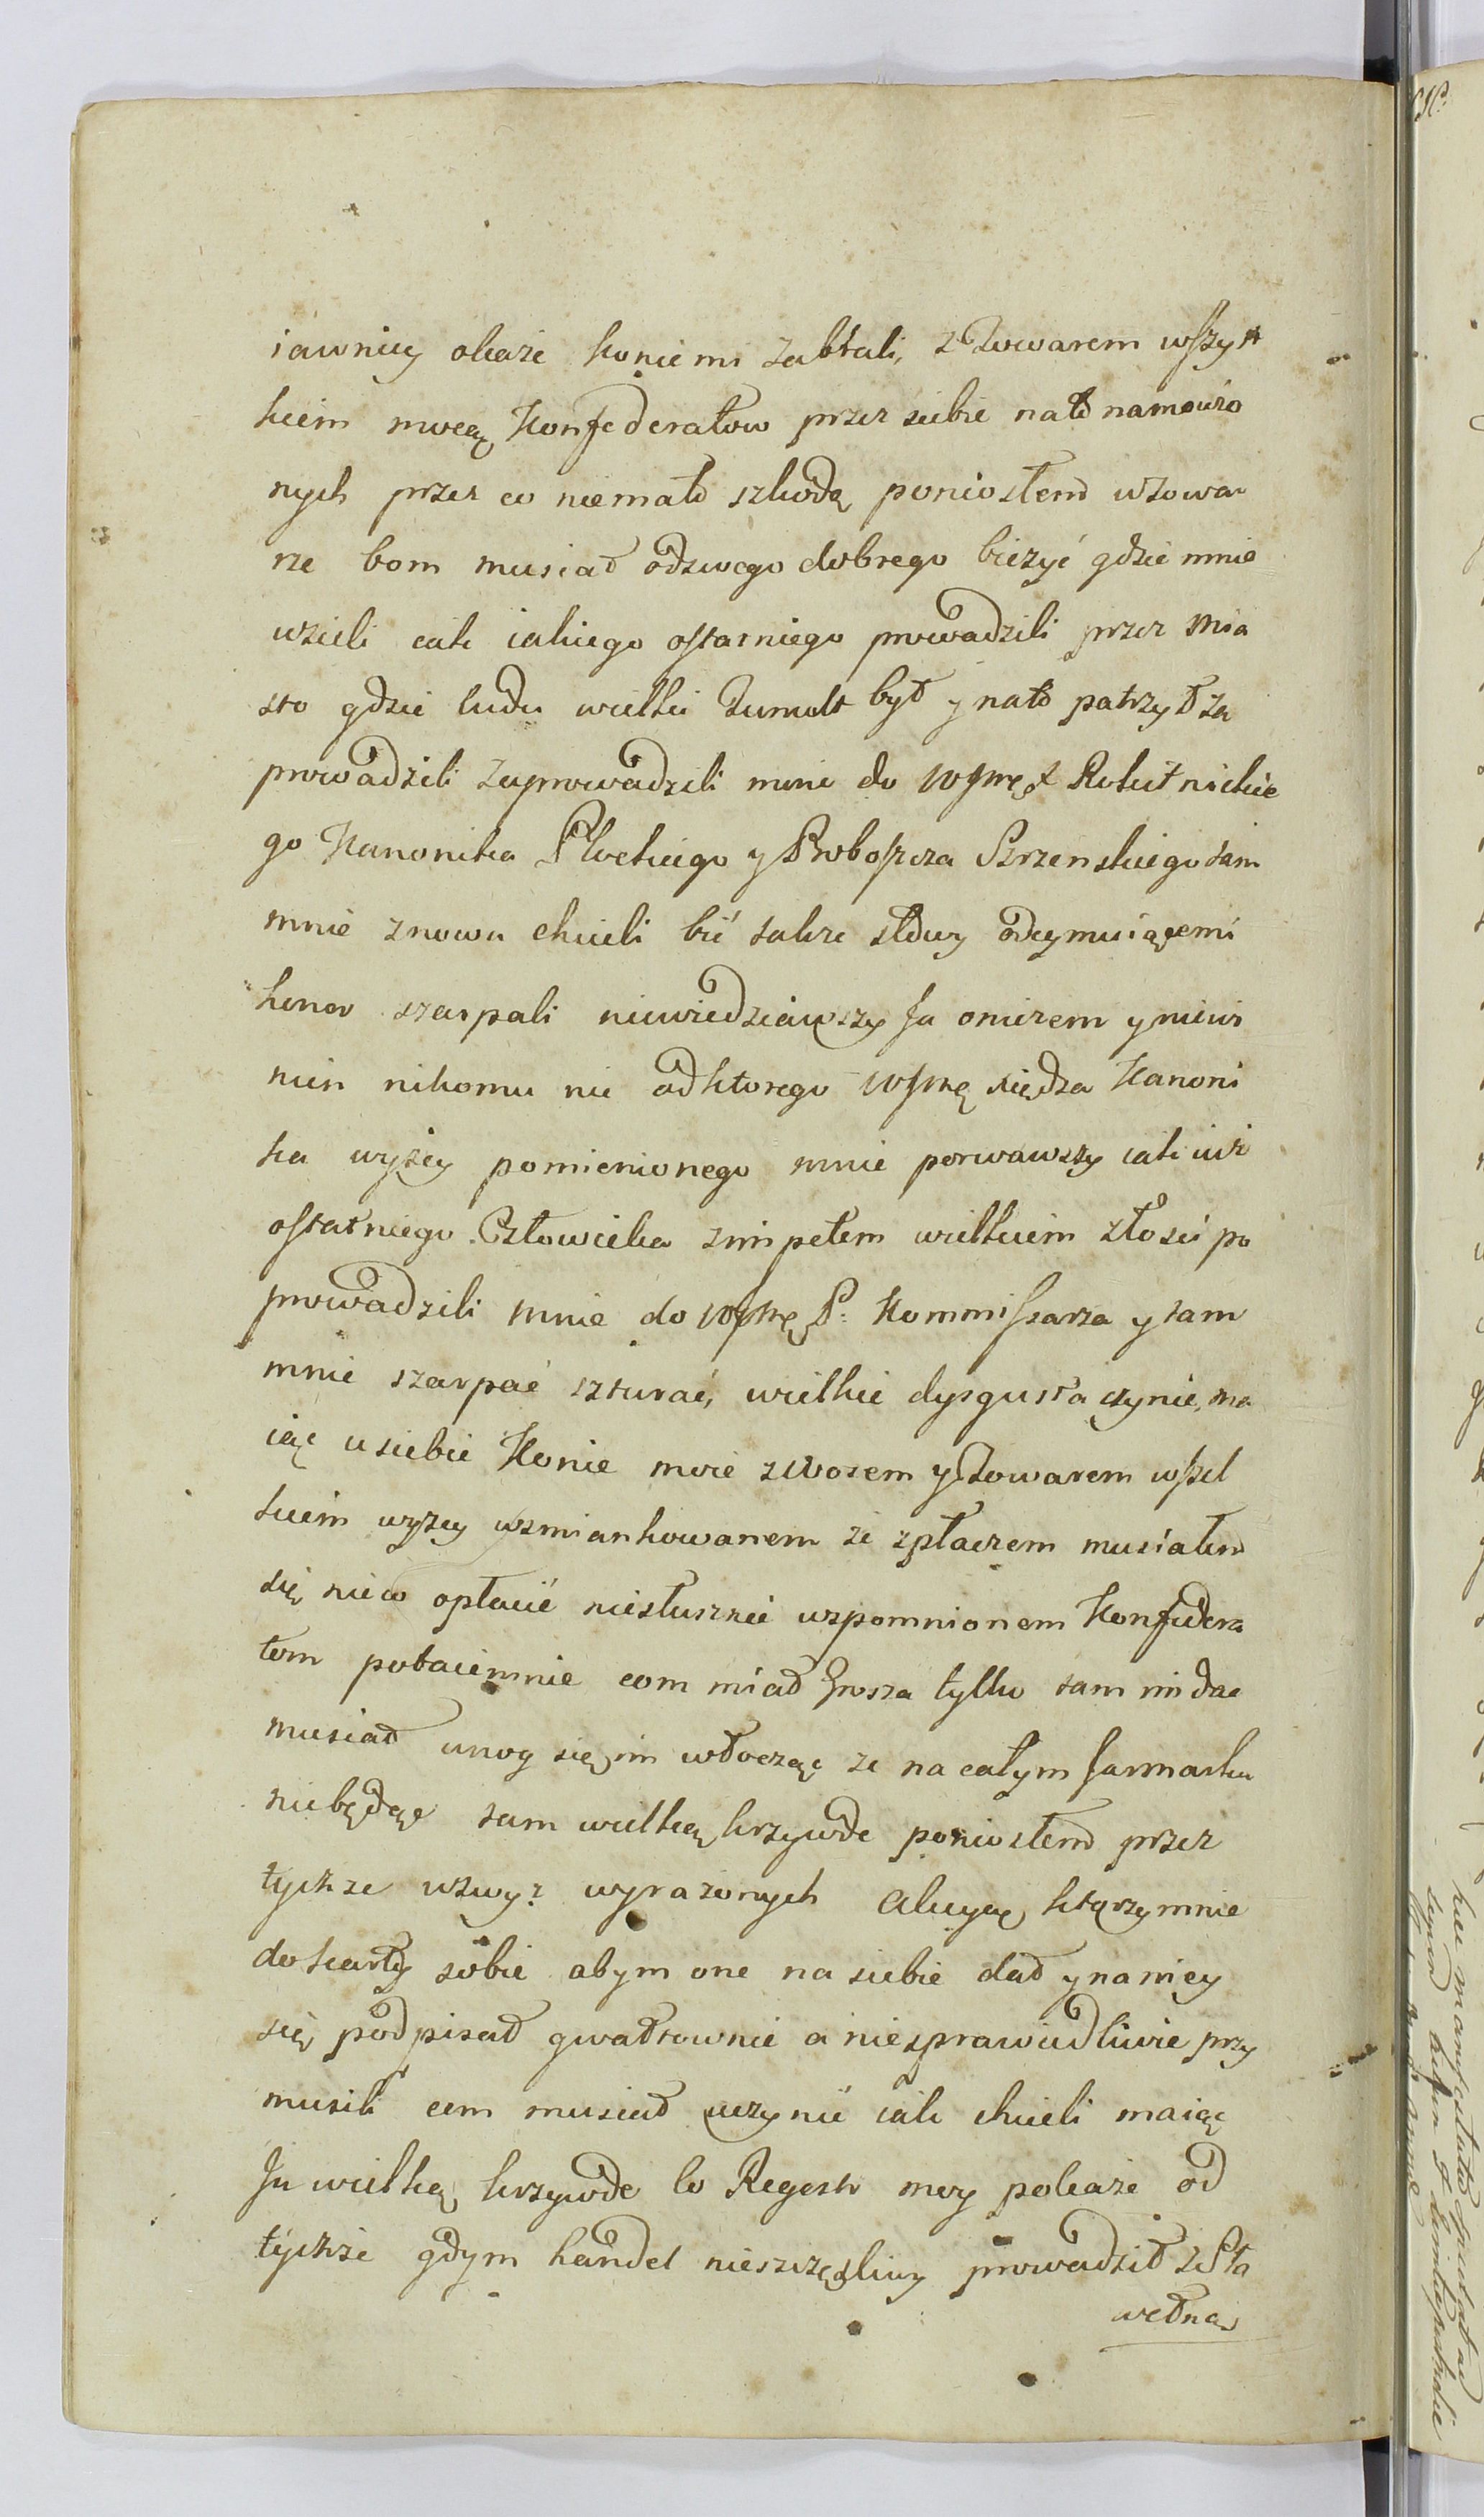 iawniey okaże koniemi zabrali, z Towarem wszyst
kiem mocą Konfederatow przez siebie nato namowio
nych przez co niemało szkodę poniosłem wtowa
rze bom musiał odswego dobrego bieżyć gdzie mnie
wzieli iak iakiego ostatniego prowadzili przez Mia
sto gdzie ludu wielki Tumult był y nato patrzył za
prowadzili zaprowadzili mnie do WJmę X Rokitnickie
go Kanonika Płockiego y Proboszcza Szrzenskiego tam
mnie znowu chcieli bić także słowy odeymuiącemi
honor szarpali niewiedziawszy Ja oniczem y niewi
nien nikomu nic odktorego WJmę xiędza Kanoni
ka wyżey pomienionego mnie porwawszy iak iuż
ostatniego Człowieka zimpetem wielkiem złości po
prowadzili mnie do WJmę P: Kommissarza y tam
mnie szarpać szturać, wielkie dysgusta czynić, ma
iąc usiebie Konie moie zWozem yTowarem wszel
kiem wyżey wzmiankowanem że zpłaczem musiałem
się nieco opłacić niesłusznie wspomnionem Konfedera
tom potaiemnie com miał Grosza tylko tam im dać
musiał unog się im włocząc że na całym Jarmarku
niebędąc tam wielką krzywde poniosłem przez
tychże wzwyż wyrażonych ktorzy mnie
dokarty sobie abym one na siebie dał y na niey
się podpisał gwałtownie a niesprawiedliwie przy
musili com musiał uczynić iak chcieli maiąc
Ja wielką krzywde co Regestr moy pokaże od
tychże gdym handel nieszczęsliwy prowadził zSta
wełną